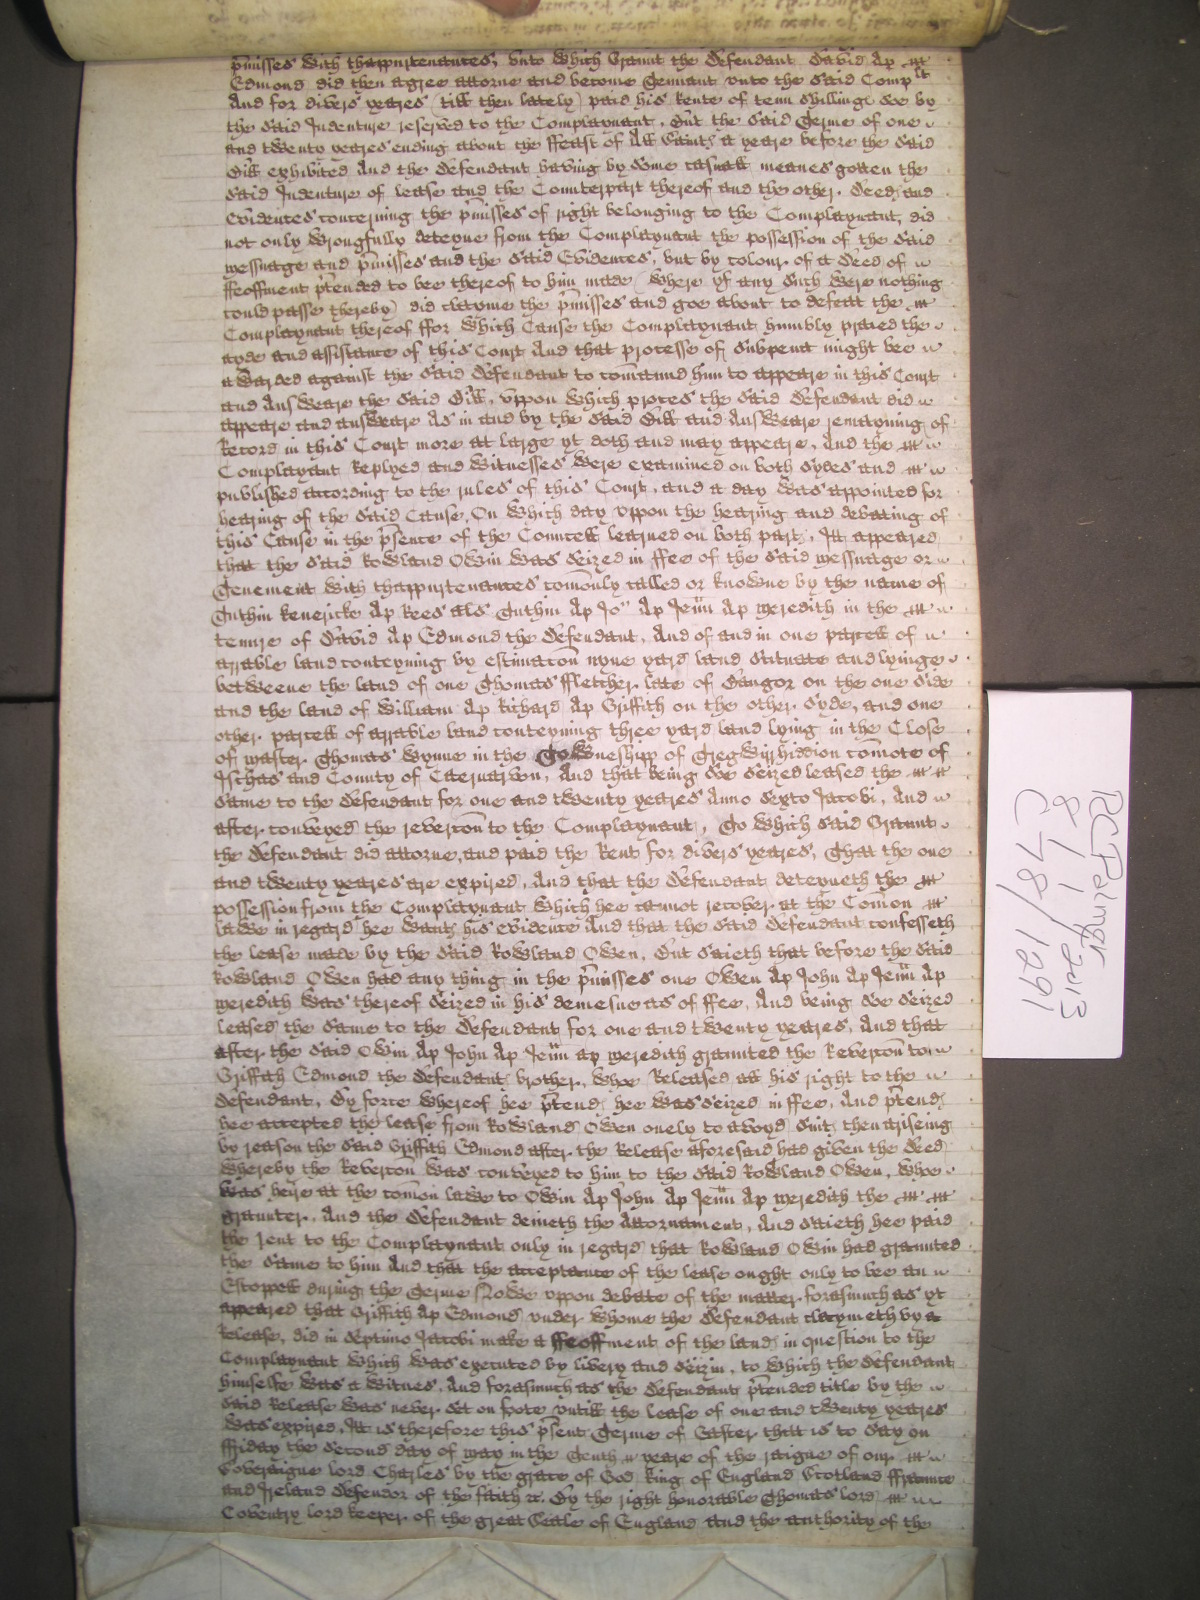 p̃misses with thappurtenances, vnto which Graunt the defendant David Ap
Edmond did then agree attorne and become Tennant vnto the said Comp^lt
And for divers yeares (till then lately) paid his Rente of tenn shillings soe by
the said Indenture reserved to the Complaynant, But the said Terme of one
and twenty yeares ending about the ffeast of All Saints a yeare before the said
Bill exhibited And the defendant having by some casuall meanes gotten the
said Indenture of lease and the Counterpart thereof and the other Deeds and
Evidences concerning the p̃misses of right belonging to the Complaynant, did
not only wrongfully deteyne from the Complaynant the possession of the said
messuage and p̃misses and the said Evidences, but by colour of a deed of
ffeoffment p̃tended to bee thereof to him made (where yf any such were nothing
could passe thereby) did clayme the p̃misses and goe about to defeat the
Complaynant thereof ffor which Cause the Complaynant humbly praied the
ayde and assistance of this Court And that processe of Subpena might bee
awarded against the said defendant to com̃aund him to appeare in this Court
and Answeare the said Bill, vppon which proces the said defendant did
appeare and answeare As in and by the said Bill and Answeare remayning of
Record in this Court more at large yt doth and may appeare, And the
Complaynant Replyed and witnesses were examined on both sydes and
published according to the rules of this Court, and a day was appointed for
hearing of the said Cause, On which day vppon the hearing and debating of
this Cause in the p̃sence of the Councell learned on both parts, It appeared
that the said Rowland Owin was seized in ffee of the said messuage or
Tenement with thappurtenances com̃only called or knowne by the name of
Tuthin Kenericke Ap Rees als Tuthin Ap Jo^n Ap Jeũn Ap meredith in the
tenure of David Ap Edmond the defendant, And of and in one parcell of
arrable land conteyning by estimac̃on nyne yard land scituate and lyinge
betweene the land of one Thomas ffletcher late of Bangor on the one side
and the land of William Ap Richard Ap Griffith on the other syde, and one
other parcell of arrable land conteyning three yard land lying in the Close
of master Thomas wynne in the Towneshipp of com̃ote of
Ischas and County of Caernarvon, And that being soe seized leased the
same to the defendant for one and twenty yeares Anno Sexto Jacobi, And
after conveyed the reverc̃on to the Complaynant, To which said Graunt
the defendant did attorne, and paid the Rent for divers yeares, That the one
and twenty yeares are expired, And that the defendant deteyneth the
possession from the Complaynant which hee cannot recover at the Com̃on
lawe in regard hee wants his evidence And that the said defendant confesseth
the lease made by the said Rowland Owen, But saieth that before the said
Rowland Owen had any thing in the p̃misses one Owen Ap John Ap Jeũn Ap
meredith was thereof seized in his demesne as of ffee, And being soe seized
leased the same to the defendant for one and twenty yeares, And that
after the said Owin Ap John Ap Jeũn ap meredith graunted the Reverc̃on to
Griffith Edmond the defendants brother, whoe Released all his right to the
defendant, By force whereof hee p̃tends hee was seized in ffee, And p̃tends
hee accepted the lease from Rowland Owen onely to avoyd suits then ariseing
by reason the said Griffith Edmond after the Release aforesaid had given the deed
whereby the Reverc̃on was conveyed to him to the said Rowland Owen, whoe
was heire at the com̃on lawe to Owin Ap John Ap Jeũn Ap meredith the
graunter, And the defendant denieth the Attornament, And saieth hee paid
the rent to the Complaynant only in regard that Rowland Owin had graunted
the same to him And that the acceptance of the lease ought only to bee an
Estoppell during the Terme Nowe vppon debate of the matter forasmuch as yt
appeared that Griffith Ap Edmond vnder whome the defendant claymeth by a
Release, did in septimo Jacobi make a ffeoffment of the lands in question to the
Complaynant which was executed by livery and seizin, to which the defendant
himselfe was a witnes, And forasmuch as the defendants p̃tended title by the
said Release was never set on foote vntill the lease of one and twenty yeares
was expired, It is therefore this p̃sent Terme of Easter that is to say on
ffriday the second day of may in the Tenth yeare of the raigne of our
Soveraigne lord Charles by the grace of God King of England Scotland ffraunce
and Ireland defendor of the faith &c. By the right honorable Thomas lord
Coventry lord keeper of the great Seale of England and the authority of the
RCPalmer
8/1/2013
C78/1291